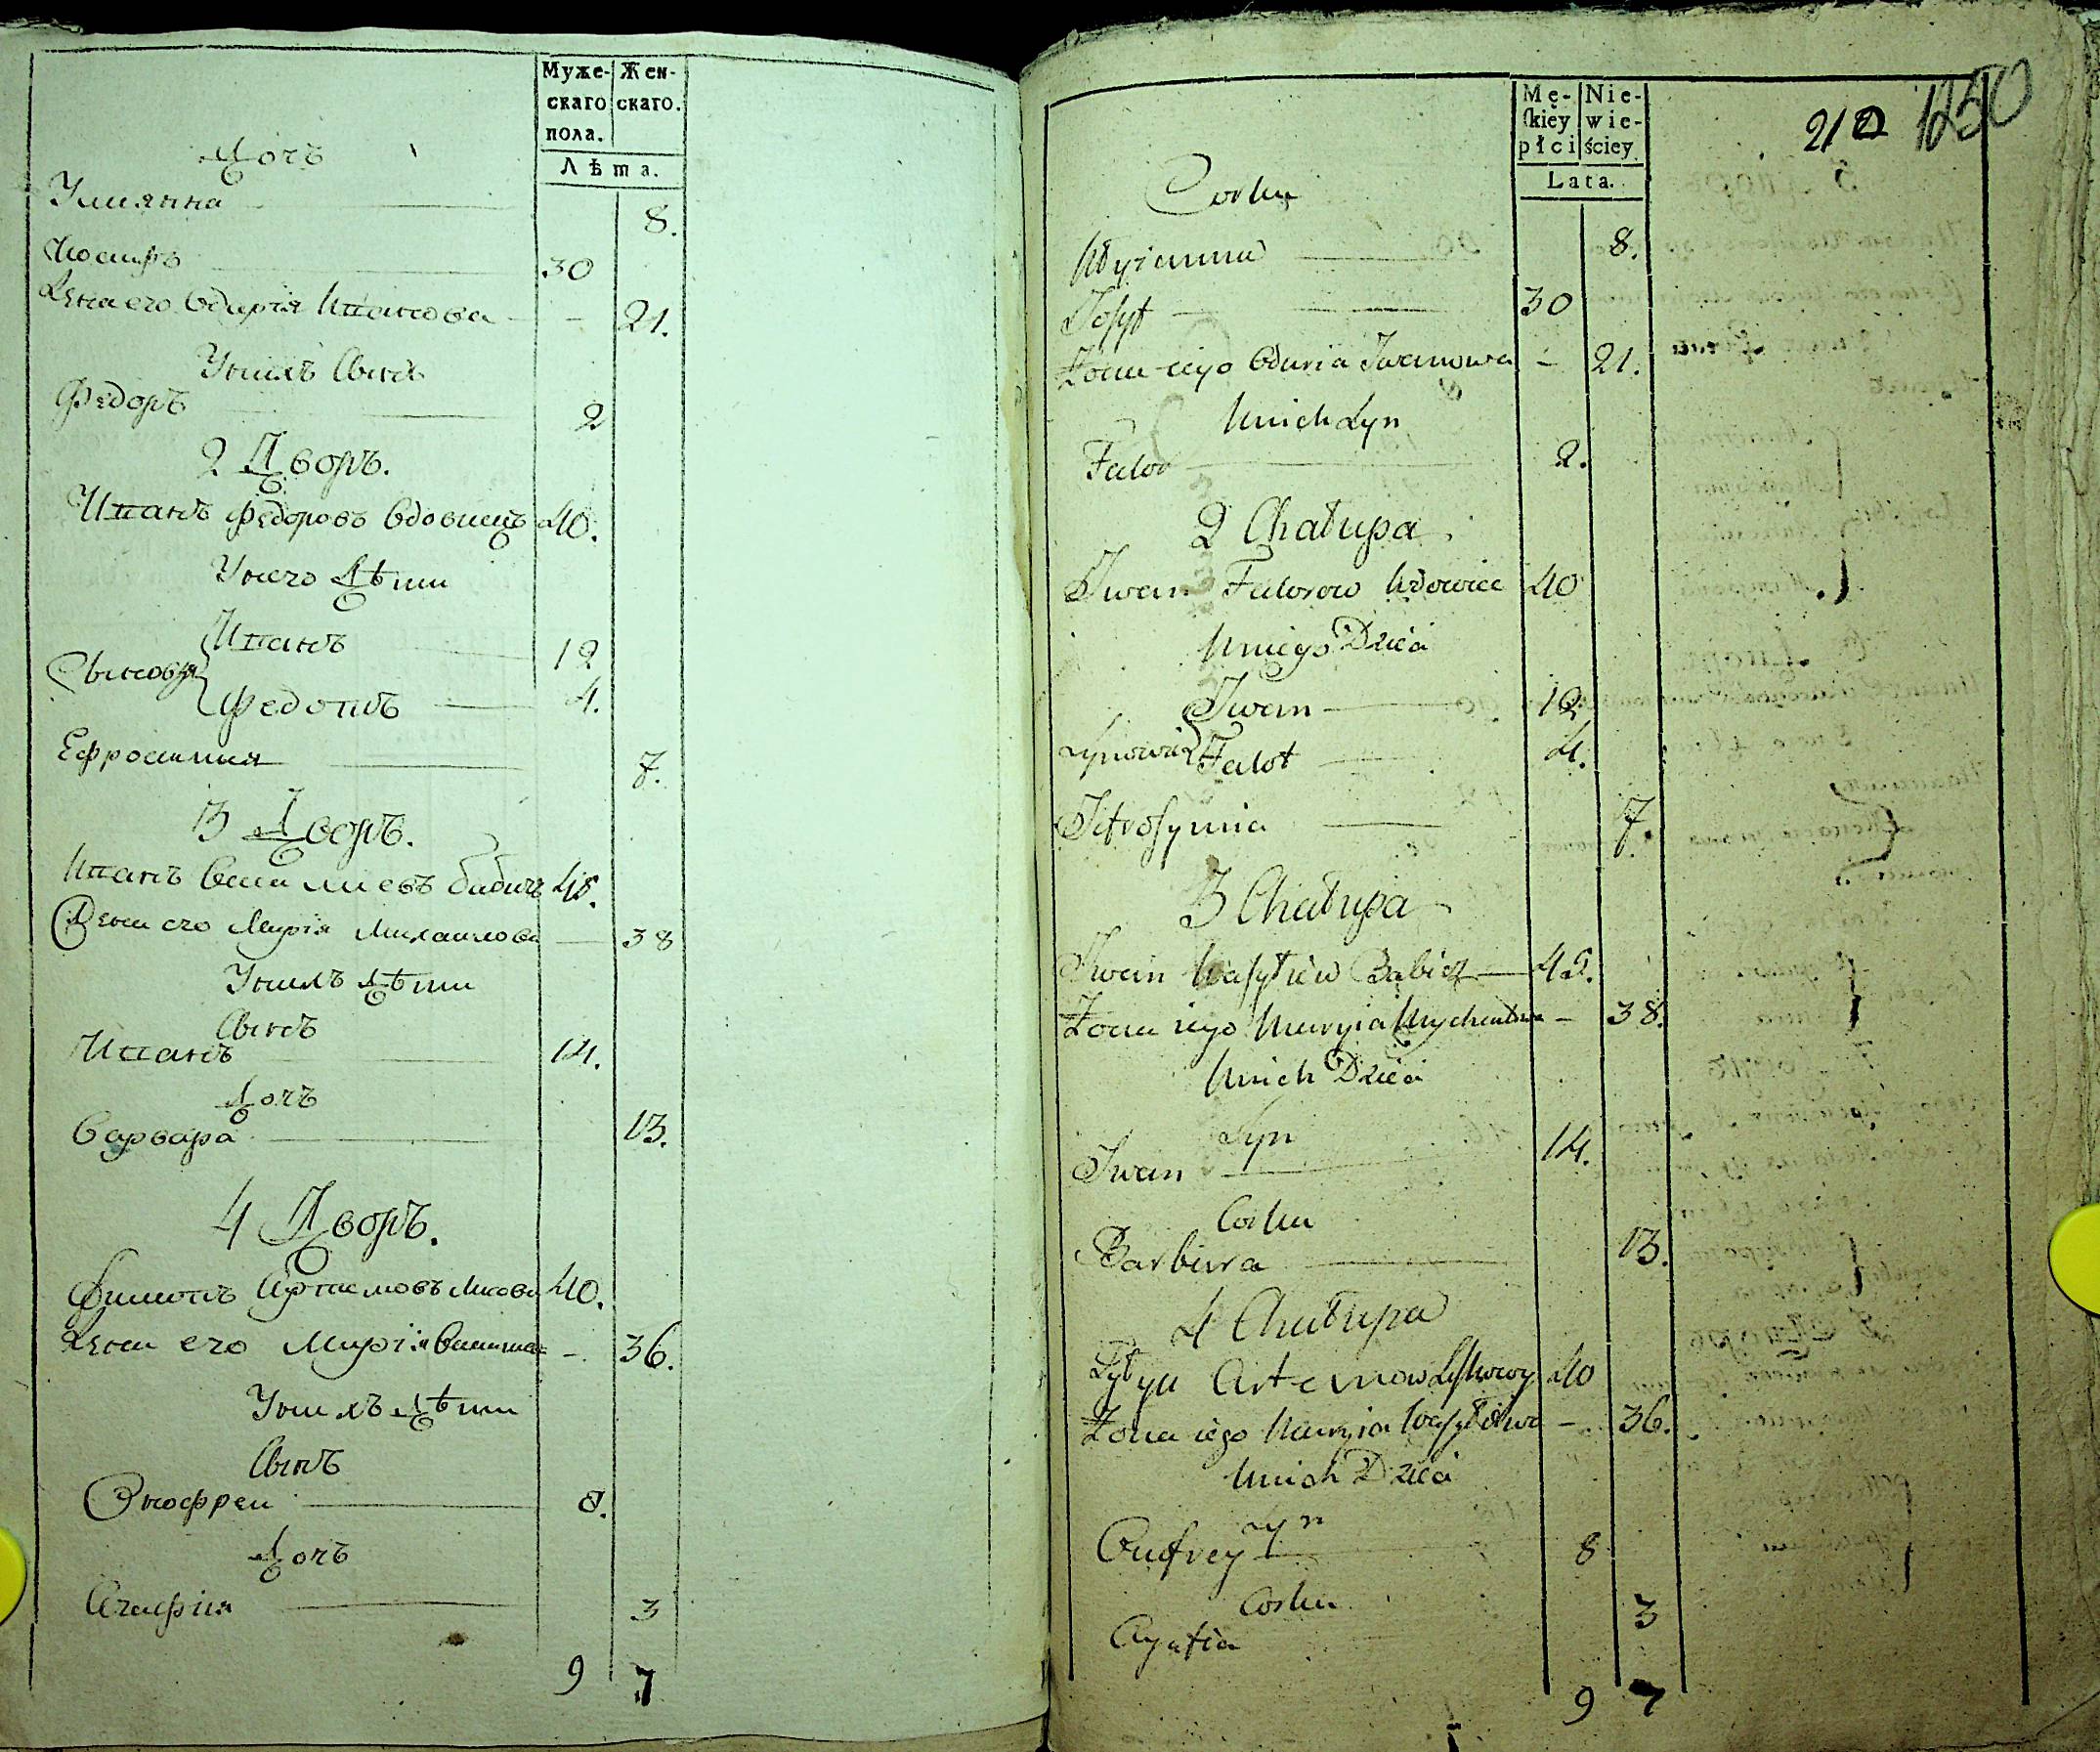 Муже-
скаго
пола.
Жен-
скаго.
Лѣта.
Дочь
Улиянна 8.
Иосифъ 30
Жена его Марія Иванова - 21.
У нихъ Сынъ
Федоръ 2
2 Дворъ.
Иванъ Федоровъ вдовецъ 40.
У него Дѣти
Сыновья { Иванъ 12
Федотъ 4.
Ефросиния 7.
3 Дворъ.
Иванъ Василиевъ бабичъ 45.
Жена его Марія Михаилова 38
У нихъ Дѣти
Сынъ
Иванъ 14.
Дочь
Варвара 13.
4 Дворъ.
Филипъ Артемовъ 40.
Жена его Марія - 36.
У нихъ Дѣти
Сынъ
Онофреи 8.
Дочь
Агафія 3
9 7
210 1250
Mę-
ſkiey
płci
Nie-
wie-
ściey
Lata.
Corka
Ulyianna 8.
Josyf 30
Żona iego Maria Iwanowa - 21.
U nich Syn
Fedor 2.
2 Chałupa
Iwan Fedorow Wdowiec 40
U niego Dzieci
Synowie { Iwan 12
Fedot 4.
Jefrosynia 7.
3 Chałupa
Iwan Wasylew Babicz 45.
Żona iego Maryia Mychaułowa - 38.
U nich Dzieci
Syn
Iwan 14.
Corka
Barbara 13.
4 Chałupa
Artemow 40
Żona iego Maryia - 36.
U nich Dzieci
Syn
Onufrey 8
Corka
Agafia 3
9 7